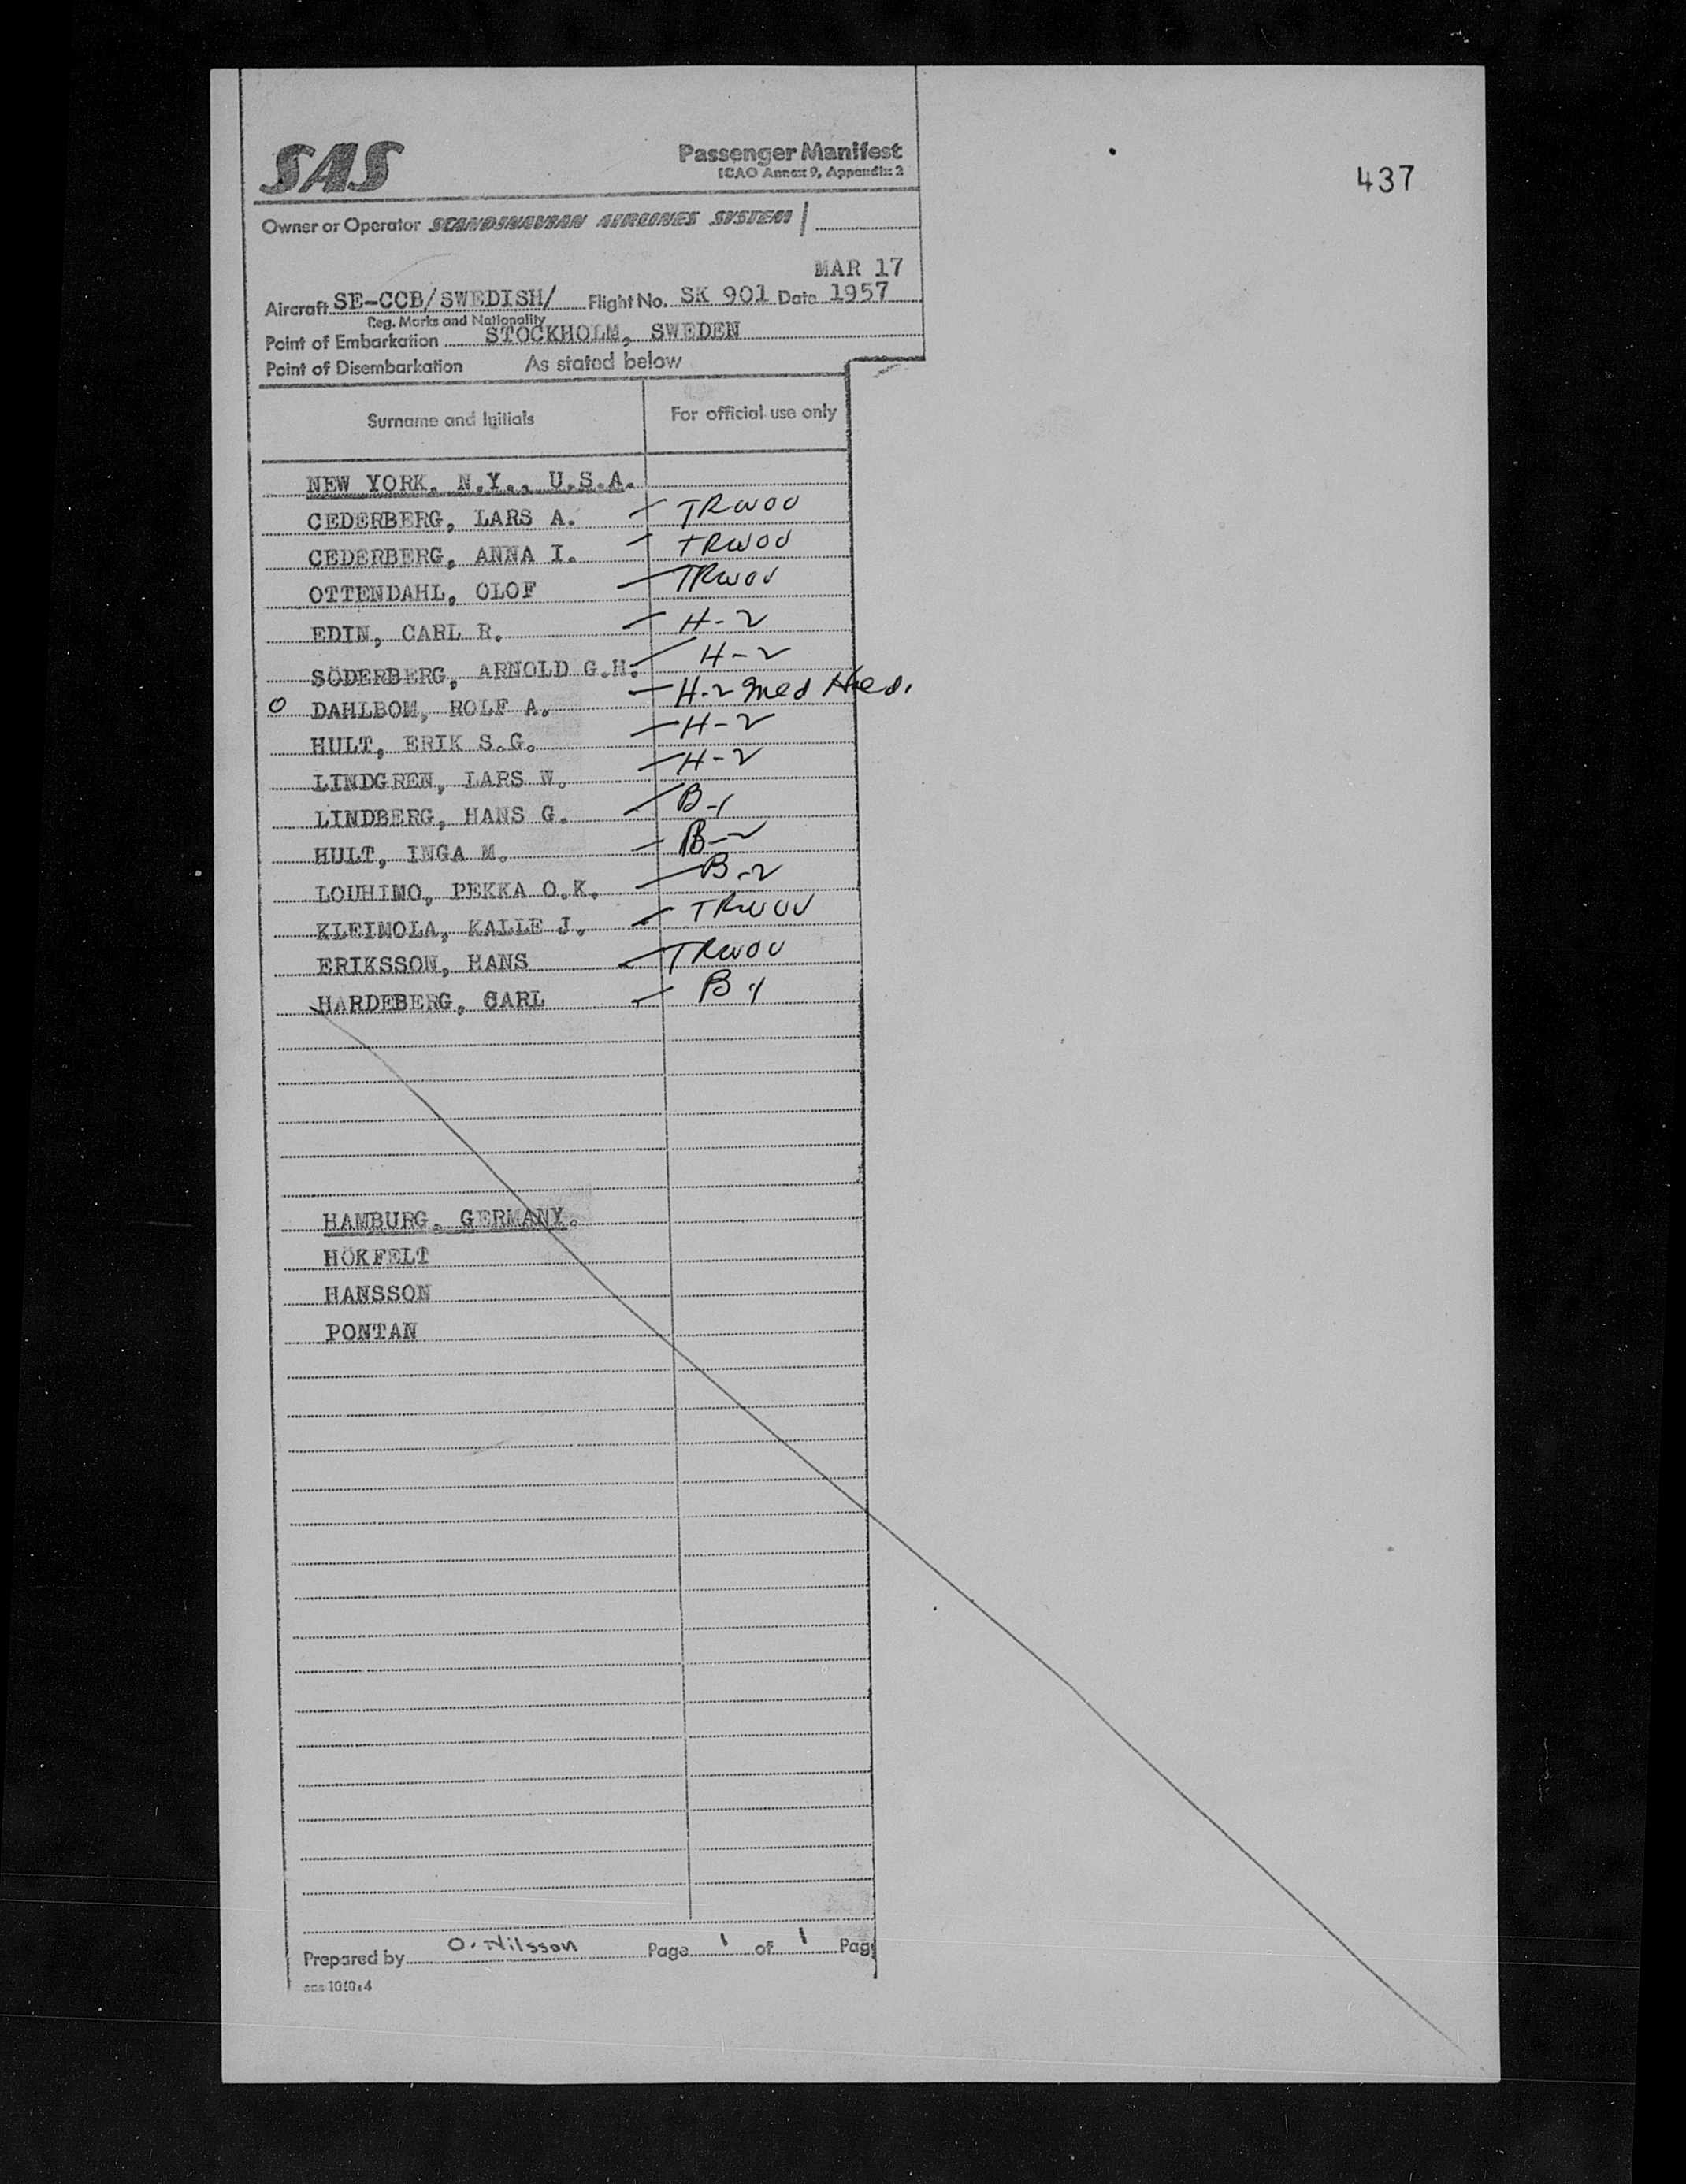 437
SAS Passenger Manifest
ICAO Annex 9, Appendix 2
Owner or Operator SCANDINAVIAN AIRLINES SYSTEM
MAR 17
Aircraft SE-CCB/SWEDISH/ Flight No. SK 901 Date 1957
Reg. Marks and Nationality
Point of Embarkation STOCKHOLM, SWEDEN
Point of Disembarkation As stated below
Surname and Initials For official use only
NEW YORK, N.Y., U.S.A.
CEDERBERG, LARS A. - TRWOV
CEDERBERG, ANNA I. - TRWOV
OTTENDAHL, OLOF - TRWOV
EDIN, CARL R. - H-2
SÖDERBERG, ARNOLD G.H. - H-2
O DAHLBOM, ROLF A. - H-2 Med
HULT, ERIK S.G. - H-2
LINDGREN, LARS W. - H-2
LINDBERG, HANS G. - B-1
HULT, INGA M. - B-2
LOUHIMO, PEKKA O.K. - B-2
KLEIMOLA, KALLE J. - TRWOV
ERIKSSON, HANS - TRWOV
HARDEBERG, CARL - B-1
HAMBURG, GERMANY.
HÖKFELT
HANSSON
PONTAN
Prepared by O. Nilsson Page 1 of 1 Pag